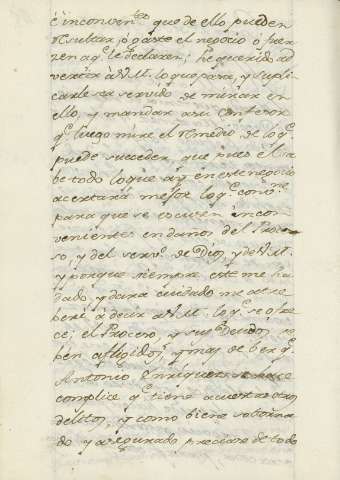 é inconven.tes que de ello pueden
resultar, ó q.e este el negocio ó fuer-
zen a q.e le declaren; he querido ad
vertir a V.M. lo que pasa, y supli-
carle sea servido de mirar en
ello, y mandar a su Confesor
q.e luego mire el remedio de lo q.e
puede succeder, que pues él sa
be todo lo que ay en este negocio
acertará mejor lo q.e conv.ne
para que se escusen incon
venientes en daños del Proce-
so, y del serv.o de Dios, y de V.M.
y porque siempre este me ha
dado, y dará cuidado me atre
beré á decir a V.M. lo q.e se ofre
ce; el Proceso, y sus Deudos se
ben afligidos, y mas de ber q.e
Antonio Enriquez se hace
complice q.e tiene acuestas otros
delitos, y como biene soborna
do y asegurado preciase de todo